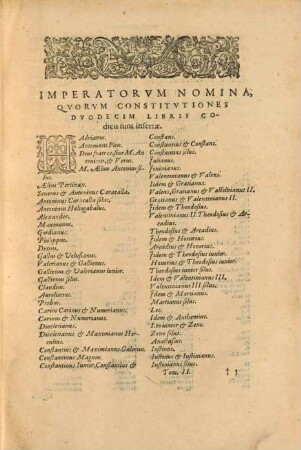 IMPERATORVM NOMINA,
QVORVM CONSTITVTIONES
DVODECIM LIBRIS CO-
dicis sunt insertæ.
HAdrianus.
Antoninus Pius.
Diui fratres siue M. An-
toninus, & Verus.
M. Ælius Antoninus so-
lus.
Ælius Pertinax.
Seuerus & Antoninus Caracalla.
Antoninus Caracalla solus.
Antoninus Heliogabalus.
Alexander.
Maximinus.
Gordianus.
Philippus.
Decius.
Gallus & Volusianus.
Valerianus & Gallienus.
Gallienus & Valerianus iunior.
Gallienus solus.
Claudius.
Aurelianus.
Probus.
Carus Carinus & Numerianus.
Carinus & Numerianus.
Diocletianus.
Diocletianus & Maximianus Her-
culius.
Constantius & Maximianus Galerius.
Constantinus Magnus.
Constantinus Iunior, Constantius &
Constans.
Constantius & Constans.
Constantius solus.
Iulianus.
Iouinianus.
Valentinianus & Valens.
Iidem & Gratianus.
Valens, Gratianus & Valentinianus II.
Gratianus & Valentinianus II.
Iidem & Theodosius.
Valentinianus II. Theodosius & Ar-
cadius.
Theodosius & Arcadius.
Iidem & Honorius.
Arcadius & Honorius.
Iidem & Theodosius iunior.
Honorius & Theodosius iunior.
Theodosius iunior solus.
Idem & Valentinianus III.
Valentinianus III. solus.
Idem & Martianus.
Martianus solus.
Leo.
Idem & Anthemius.
Leo iunior & Zeno.
Zeno solus.
Anastasius.
Iustinus.
Iustinus & Iustinianus.
Iustinianus solus.
Tom. II.